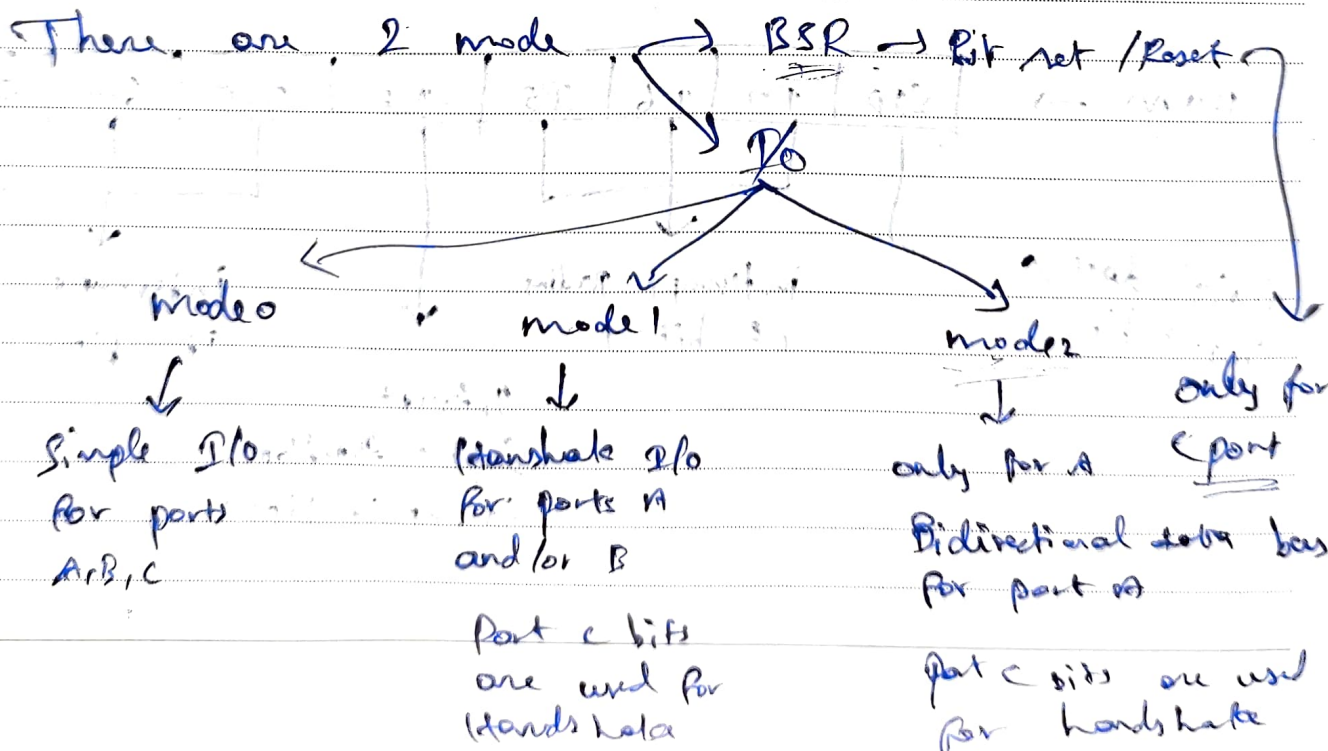 There are 2 mode → BSR → Bit set / Reset
I/O
mode 0
mode 1
mode 2
only for
C port
Simple I/O
for ports
A, B, C
Hanshake I/O
for ports A
and/or B
Port C bits
are used for
Handshake
only for A
Bidirectional data bus
for port A
Port C bits are used
for handshake